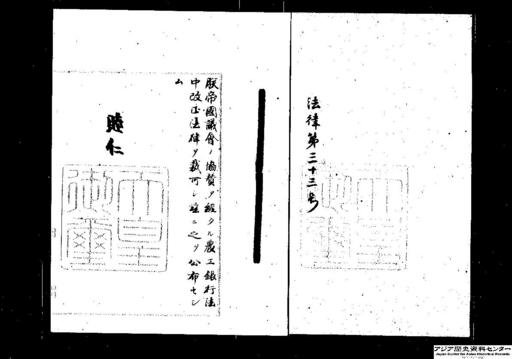 法律第三十三号
朕帝國議會ノ協賛ヲ經タル農工銀行法
中改正法律ヲ裁可シ茲ニ之ヲ公布セシ
ム
睦仁
天皇
御璽
アジア歴史資料センター
Japan Center for Asian Historical Records